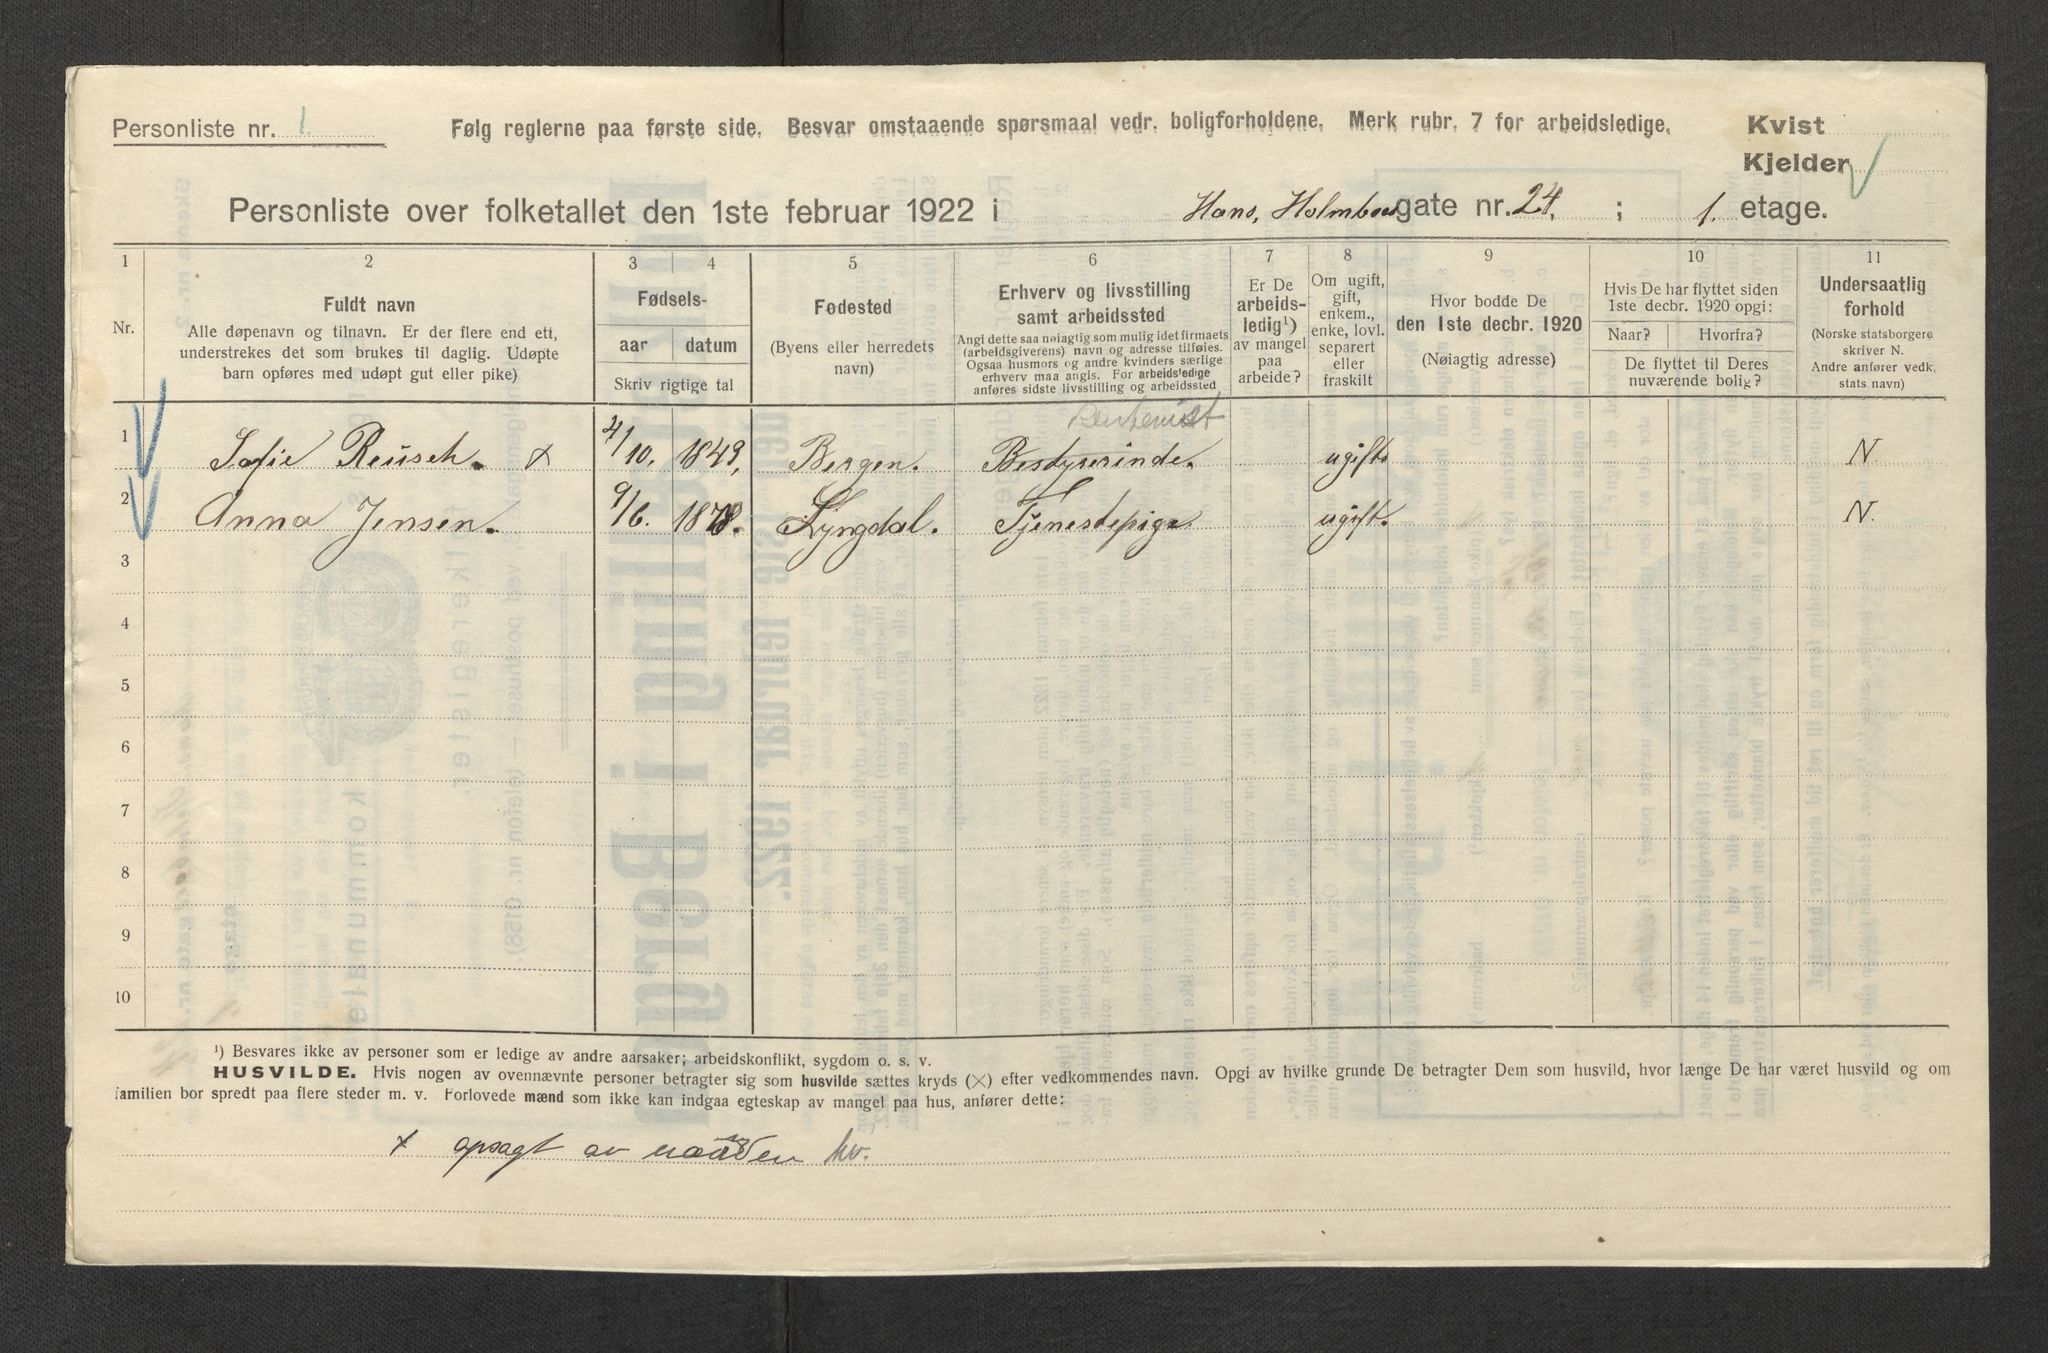 Personliste nr. 1.
Følg reglerne paa første side. Besvar omstaaende spørsmaal vedr. boligforholdene. Merk rubr. 7 for arbeidsledige.
Kvist
Kjelder
Personliste over folketallet den 1ste februar 1922 i Hans, Holmboes gate nr. 24. ; 1. etage.
1 2 3 4 5 6 7 8 9 10 11
Nr.
Fuldt navn
Alle døpenavn og tilnavn. Er der flere end ett,
understrekes det som brukes til daglig. Udøpte
barn opføres med udøpt gut eller pike)
Fødsels-
aar datum
Skriv rigtige tal
Fødested
(Byens eller herredets
navn)
Erhverv og livsstilling
samt arbeidssted
Angi dette saa nøiagtig som mulig idet firmaets
(arbeidsgiverens) navn og adresse tilføies.
Ogsaa husmors og andre kvinders særlige
erhverv maa angis. For arbeidsledige
anføres sidste livsstilling og arbeidssted
Er De
arbeids-
ledig¹)
av mangel
paa
arbeide?
Om ugift,
gift,
enkem.,
enke, lovl.
separert
eller
fraskilt
Hvor bodde De
den 1ste decbr. 1920
(Nøiagtig adresse)
Hvis De har flyttet siden
1ste decbr. 1920 opgi:
Naar? Hvorfra?
De flyttet til Deres
nuværende bolig?
Undersaatlig
forhold
(Norske statsborgere
skriver N.
Andre anfører vedk.
stats navn)
1 Sofie Reusch. x 4/10. 1849. Bergen. Bestyrerinde. ugift. N
2 Anna Jensen. 9/6. 1878. Lyngdal. Tjenestepige ugift. N.
3
4
5
6
7
8
9
10
¹) Besvares ikke av personer som er ledige av andre aarsaker; arbeidskonflikt, sygdom o. s. v.
HUSVILDE. Hvis nogen av ovennævnte personer betragter sig som husvilde sættes kryds (×) efter vedkommendes navn. Opgi av hvilke grunde De betragter Dem som husvild, hvor længe De har været husvild og om
familien bor spredt paa flere steder m. v. Forlovede mænd som ikke kan indgaa egteskap av mangel paa hus, anfører dette:
x opsagt av hv.